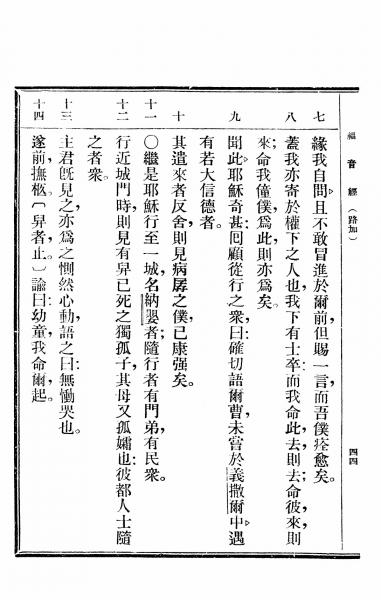 福音經(路加)
四四
七 緣我自問且不敢冒進於爾前但賜一言,而吾僕痊愈矣。
八 蓋我亦寄於權下之人也,我下有士卒,而我命此去,則去;命彼來,則
來;命我僮僕爲此,則亦爲矣。
九 聞此,耶穌奇甚;回顧從行之衆,曰:確切語爾曹,未嘗於義撒爾中遇
有若大信德者。
十 其遣來者反舍,則見病孱之僕已康强矣。
十一 〇繼是耶穌行至一城,名納嬰者;隨行者有門弟,有民衆。
十二 行近城門時,則見有舁已死之獨孤子,其母又孤孀也;彼都人士隨
之者衆。
十三 主君旣見之,亦爲之惻然心動,語之曰:無慟哭也。
十四 遂前,撫柩,〔舁者,止。〕諭曰:幼童,我命爾,起。